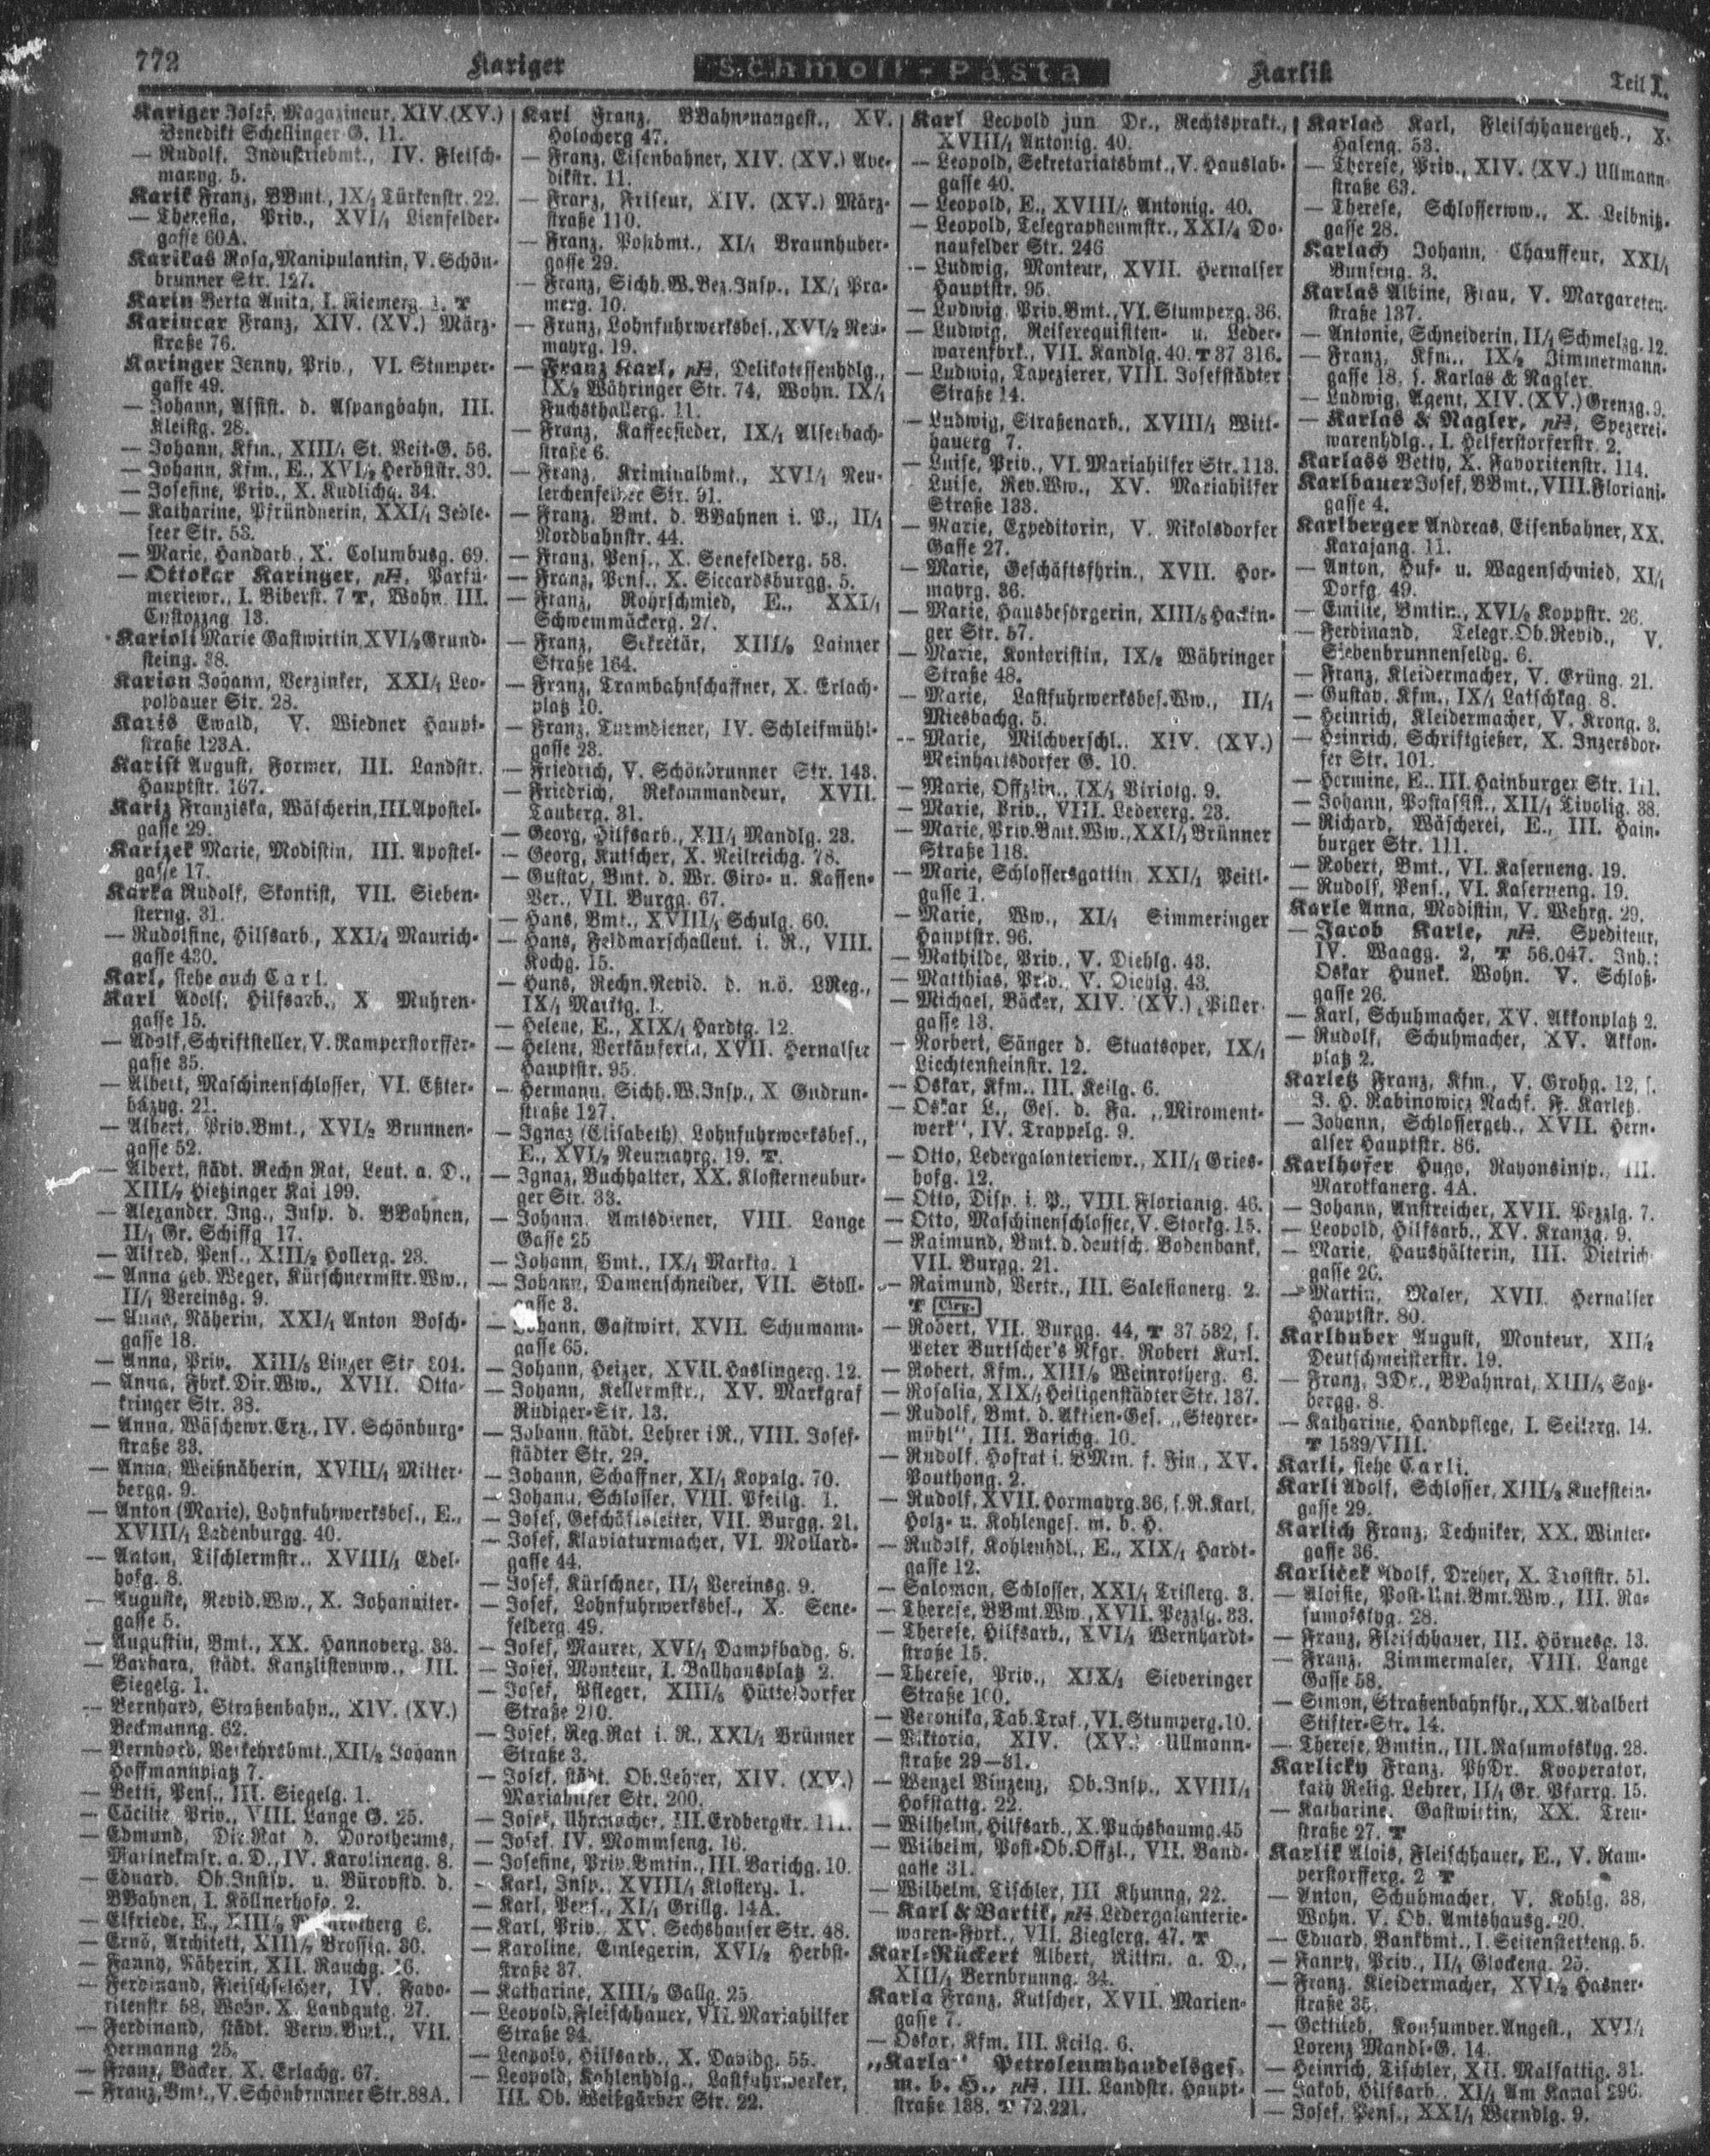 772
Kariger
Schmoll-Pasta
Karlik
Teil I.
Kariger Josef, Magazineur, XIV.(XV.)
Benedikt Schellinger G. 11.
— Rudolf, Industriebmt., IV. Fleisch-
manng. 5.
Karik Franz, BBmt., IX/1 Türkenstr. 22.
— Theresia, Priv., XVI/1 Lienfelder-
gasse 60A.
Karikas Rosa, Manipulantin, V. Schön-
brunner Str. 127.
Karin Berta Anita, I. Riemerg. 1. T
Karincar Franz, XIV. (XV.) März-
straße 76.
Karinger Jenny, Priv., VI. Stumper-
gasse 49.
— Johann, Assist. d. Aspangbahn, III.
Kleistg. 28.
— Johann, Kfm., XIII/1 St. Veit-G. 56.
— Johann, Kfm., E., XVI/2 Herbststr. 39.
— Josefine, Priv., X. Kudlichg. 34.
— Katharine, Pfründnerin, XXI/1 Jedle-
seer Str. 53.
— Marie, Handarb., X. Columbusg. 69.
— Ottokar Karinger, pH, Parfü-
meriewr., I. Biberst. 7 T, Wohn. III.
Custozzag. 13.
Karioli Marie Gastwirtin, XVI/2 Grund-
steing. 38.
Karion Johann, Verzinker, XXI/1 Leo-
poldauer Str. 28.
Karis Ewald, V. Wiedner Haupt-
straße 123A.
Karist August, Former, III. Landstr.
Hauptstr. 167.
Kariz Franziska, Wäscherin, III. Apostel-
gasse 29.
Karizek Marie, Modistin, III. Apostel-
gasse 17.
Karka Rudolf, Skontist, VII. Sieben-
sterng. 31.
— Rudolfine, Hilfsarb., XXI/4 Maurich-
gasse 430.
Karl, siehe auch Carl.
Karl Adolf, Hilfsarb., X Muhren-
gasse 15.
— Adolf, Schriftsteller, V. Ramperstorffer-
gasse 35.
— Albert, Maschinenschlosser, VI. Eßter-
házyg. 21.
— Albert, Priv.Bmt., XVI/2 Brunnen-
gasse 52.
— Albert, städt. Rechn Rat, Leut. a. D.,
XIII/7 Hietzinger Kai 199.
— Alexander, Ing., Insp. d. BBahnen,
II/1 Gr. Schiffg 17.
— Alfred, Pens., XIII/2 Hollerg. 23.
— Anna geb. Weger, Kürschnermstr.Ww.,
II/1 Vereinsg. 9.
— Anna, Näherin, XXI/1 Anton Bosch-
gasse 18.
— Anna, Priv. XIII/5 Linzer Str. 204.
— Anna, Fbrk.Dir.Ww., XVII. Otta-
kringer Str. 38.
— Anna, Wäschewr.Erz., IV. Schönburg-
straße 33.
— Anna, Weißnäherin, XVIII/1 Mitter-
bergg. 9.
— Anton (Marie), Lohnfuhrwerksbes., E.,
XVIII/1 Ladenburgg. 40.
— Anton, Tischlermstr., XVIII/1 Edel-
hofg. 8.
— Auguste, Revid.Ww., X. Johanniter-
gasse 5.
— Augustin, Bmt., XX. Hannoverg. 33.
— Barbara, städt. Kanzlistenww., III.
Siegelg. 1.
— Bernhard, Straßenbahn., XIV. (XV.)
Beckmanng. 62.
— Bernhard, Verkehrsbmt., XII/2 Johann
Hoffmannplatz 7.
— Betti, Pens., III. Siegelg. 1.
— Cäcilie, Priv., VIII. Lange G. 25.
— Edmund, Dir.Rat d. Dorotheums,
Marinekmsr. a. D., IV. Karolineng. 8.
— Eduard, Ob.Instsp. u. Bürovstd. d.
BBahnen, I. Köllnerhofg. 2.
— Elfriede, E., XIII/9 6.
— Ernö, Architekt, XIII/7 Brossig. 30.
— Fanny, Näherin, XII. Rauchg. 6.
— Ferdinand, Fleischselcher, IV. Favo-
ritenstr 58, Wohn. X. Landgutg. 27.
— Ferdinand, städt. Verw.Bmt., VII.
Hermanng 25.
— Franz, Bäcker, X. Erlachg. 67.
— Franz, Bmt., V. Schönbrunner Str. 88A.
Karl Franz, BBahnenangest., XV.
Holocherg 47.
— Franz, Eisenbahner, XIV. (XV.) Ave-
dikstr. 11.
— Franz, Friseur, XIV. (XV.) März-
straße 110.
— Franz, Postbmt., XI/1 Braunhuber-
gasse 29.
— Franz, Sichh.W.Bez.Insp., IX/1 Pra-
merg. 10.
— Franz, Lohnfuhrwerksbes., XVI/2 Neu-
mayrg. 19.
— Franz Karl, pH, Delikatessenhdlg.,
IX/2 Währinger Str. 74, Wohn. IX/1
Fuchsthallerg. 11.
— Franz, Kaffeesieder, IX/1 Alserbach-
straße 6.
— Franz, Kriminalbmt., XVI/1 Neu-
lerchenfelder Str. 91.
— Franz, Bmt. d. BBahnen i. P., II/1
Nordbahnstr. 44.
— Franz, Pens., X. Senefelderg. 58.
— Franz, Pens., X. Siccardsburgg. 5.
— Franz, Rohrschmied, E., XXI/1
Schwemmäckerg. 27.
— Franz, Sekretär, XIII/9 Lainzer
Straße 164.
— Franz, Trambahnschaffner, X. Erlach-
platz 10.
— Franz, Turmdiener, IV. Schleifmühl-
gasse 23.
— Friedrich, V. Schönbrunner Str. 143.
— Friedrich, Rekommandeur, XVII.
Tauberg. 31.
— Georg, Hilfsarb., XII/1 Mandlg. 23.
— Georg, Kutscher, X. Neilreichg. 78.
— Gustav, Bmt. d. Wr. Giro- u. Kassen-
Ver., VII. Burgg. 67.
— Hans, Bmt., XVIII/1 Schulg. 60.
— Hans, Feldmarschalleut. i. R., VIII.
Kochg. 15.
— Hans, Rechn.Revid. d. n.ö. LReg.,
IX/1 Marktg. 1.
— Helene, E., XIX/1 Hardtg. 12.
— Helene, Verkäuferin, XVII. Hernalser
Hauptstr. 95.
— Hermann, Sichh.W.Insp., X Gudrun-
straße 127.
— Ignaz (Elisabeth), Lohnfuhrwerksbes.,
E., XVI/2 Neumayrg. 19. T.
— Ignaz, Buchhalter, XX. Klosterneubur-
ger Str. 33.
— Johann, Amtsdiener, VIII. Lange
Gasse 25
— Johann, Bmt., IX/1 Marktg. 1
— Johann, Damenschneider, VII. Stoll-
gasse 3.
— Johann, Gastwirt, XVII. Schumann-
gasse 65.
— Johann, Heizer, XVII. Haslingerg. 12.
— Johann, Kellermstr., XV. Markgraf
Rüdiger-Str. 13.
— Johann, städt. Lehrer i R., VIII. Josef-
städter Str. 29.
— Johann, Schaffner, XI/1 Kopalg. 70.
— Johann, Schlosser, VIII. Pfeilg. 1.
— Josef, Geschäftsleiter, VII. Burgg. 21.
— Josef, Klaviaturmacher, VI. Mollard-
gasse 44.
— Josef, Kürschner, II/1 Vereinsg. 9.
— Josef, Lohnfuhrwerksbes., X. Sene-
felderg. 49.
— Josef, Maurer, XVI/1 Dampfbadg. 8.
— Josef, Monteur, I. Ballhausplatz 2.
— Josef, Pfleger, XIII/5 Hütteldorfer
Straße 210.
— Josef, Reg.Rat i. R., XXI/1 Brünner
Straße 3.
— Josef, städt. Ob.Lehrer, XIV. (XV.)
Mariahilfer Str. 200.
— Josef, Uhrmacher, III. Erdbergstr. 111.
— Josef, IV. Mommseng. 16.
— Josefine, Priv.Bmtin., III. Barichg. 10.
— Karl, Insp., XVIII/1 Klosterg. 1.
— Karl, Pens., XI/1 Grillg. 14A.
— Karl, Priv., XV. Sechshauser Str. 48.
— Karoline, Einlegerin, XVI/2 Herbst-
straße 37.
— Katharine, XIII/2 Gallg. 25
— Leopold, Fleischhauer, VII. Mariahilfer
Straße 94.
— Leopold, Hilfsarb., X. Davidg. 55.
— Leopold, Kohlenhdlg., Lastfuhrwerker,
III. Ob. Weißgärber Str. 22.
Karl Leopold jun Dr., Rechtsprakt.,
XVIII/1 Antonig. 40.
— Leopold, Sekretariatsbmt., V. Hauslab-
gasse 40.
— Leopold, E., XVIII/1 Antonig. 40.
— Leopold, Telegraphenmstr., XXI/4 Do-
naufelder Str. 246
— Ludwig, Monteur, XVII. Hernalser
Hauptstr. 95.
— Ludwig, Priv.Bmt., VI. Stumperg. 36.
— Ludwig, Reiserequisiten- u. Leder-
warenfbrk., VII. Kandlg. 40. T 37 316.
— Ludwig, Tapezierer, VIII. Josefstädter
Straße 14.
— Ludwig, Straßenarb., XVIII/1 Witt-
hauerg 7.
— Luise, Priv., VI. Mariahilfer Str. 113.
— Luise, Rev.Ww., XV. Mariahilfer
Straße 133.
— Marie, Expeditorin, V. Nikolsdorfer
Gasse 27.
— Marie, Geschäftsfhrin., XVII. Hor-
mayrg. 36.
— Marie, Hausbesorgerin, XIII/5 Hackin-
ger Str. 57.
— Marie, Kontoristin, IX/2 Währinger
Straße 48.
— Marie, Lastfuhrwerksbes.Ww., II/1
Miesbachg. 5.
— Marie, Milchverschl., XIV. (XV.)
Meinhartsdorfer G. 10.
— Marie, Offzlin., IX/1 Viriotg. 9.
— Marie, Priv., VIII. Ledererg. 23.
— Marie, Priv.Bmt.Ww., XXI/1 Brünner
Straße 118.
— Marie, Schlossersgattin XXI/1 Peitl-
gasse 1.
— Marie, Ww., XI/1 Simmeringer
Hauptstr. 96.
— Mathilde, Priv., V. Diehlg. 43.
— Matthias, Priv., V. Diehlg. 43.
— Michael, Bäcker, XIV. (XV.) Piller-
gasse 13.
— Norbert, Sänger d. Staatsoper, IX/1
Liechtensteinstr. 12.
— Oskar, Kfm., III. Keilg. 6.
— Oskar L., Ges. d. Fa. „Miroment-
werk", IV. Trappelg. 9.
— Otto, Ledergalanteriewr., XII/1 Gries-
hofg. 12.
— Otto, Disp. i. P., VIII. Florianig. 46.
— Otto, Maschinenschlosser, V. Storkg. 15.
— Raimund, Bmt. d. deutsch. Bodenbank,
VII. Burgg. 21.
— Raimund, Vertr., III. Salesianerg. 2.
T Clrg.
— Robert, VII. Burgg. 44, T 37 532, s.
Peter Burtscher's Nfgr. Robert Karl.
— Robert, Kfm., XIII/9 Weinrotherg. 6.
— Rosalia, XIX/1 Heiligenstädter Str. 137.
— Rudolf, Bmt. d. Aktien-Ges. „Steyrer-
mühl", III. Barichg. 10.
— Rudolf, Hofrat i. BMin. f. Fin., XV.
Pouthong. 2.
— Rudolf, XVII. Hormayrg. 36, s. R. Karl,
Holz- u. Kohlenges. m. b. H.
— Rudolf, Kohlenhdl., E., XIX/1 Hardt-
gasse 12.
— Salomon, Schlosser, XXI/1 Trillerg. 3.
— Therese, BBmt.Ww., XVII. Pezzlg. 33.
— Therese, Hilfsarb., XVI/1 Wernhardt-
straße 15.
— Therese, Priv., XIX/1 Sieveringer
Straße 100.
— Veronika, Tab.Traf., VI. Stumperg. 10.
— Viktoria, XIV. (XV.) Ullmann-
straße 29—31.
— Wenzel Vinzenz, Ob.Insp., XVIII/1
Hofstattg. 22.
— Wilhelm, Hilfsarb., X. Puchsbaumg. 45
— Wilhelm, Post-Ob.Offzl., VII. Band-
gasse 31.
— Wilhelm, Tischler, III Khunng. 22.
— Karl & Bartik, pH. Ledergalanterie-
waren-Fbrk., VII. Zieglerg. 47. T
Karl-Rückert Albert, Rittm. a. D.,
XIII/1 Bernbrunng. 34.
Karla Franz, Kutscher, XVII. Marien-
gasse 7.
— Oskar, Kfm. III. Keilg. 6.
„Karla" Petroleumhandelsges.
m. b. H., pH. III. Landstr. Haupt-
straße 138. T 72.221.
Karlac Karl, Fleischhauergeh., X.
Haseng. 53.
— Therese, Priv., XIV. (XV.) Ullmann-
straße 63.
— Therese, Schlosserww., X. Leibnitz-
gasse 28.
Karlach Johann, Chauffeur, XXI/1
Bunseng. 3.
Karlas Albine, Frau, V. Margareten-
straße 137.
— Antonie, Schneiderin, II/1 Schmelzg. 12.
— Franz, Kfm., IX/2 Zimmermann-
gasse 18, s. Karlas & Nagler.
— Ludwig, Agent, XIV. (XV.) Grenzg. 9.
— Karlas & Nagler, pH, Spezerei-
warenhdlg., I. Helferstorferstr. 2.
Karlass Betty, X. Favoritenstr. 114.
Karlbauer Josef, BBmt., VIII. Floriani-
gasse 4.
Karlberger Andreas, Eisenbahner, XX.
Karajang. 11.
— Anton, Huf- u. Wagenschmied, XI/1
Dorfg 49.
— Emilie, Bmtin., XVI/2 Koppstr. 26.
— Ferdinand, Telegr.Ob.Revid., V.
Siebenbrunnenfeldg. 6.
— Franz, Kleidermacher, V. Grüng. 21.
— Gustav, Kfm., IX/1 Latschkag. 8.
— Heinrich, Kleidermacher, V. Krong. 3.
— Heinrich, Schriftgießer, X. Inzersdor-
fer Str. 101.
— Hermine, E., III. Hainburger Str. 111.
— Johann, Postassist., XII/1 Tivolig. 38.
— Richard, Wäscherei, E., III. Hain-
burger Str. 111.
— Robert, Bmt., VI. Kaserneng. 19.
— Rudolf, Pens., VI. Kaserneng. 19.
Karle Anna, Modistin, V. Wehrg. 29.
— Jacob Karle, pH. Spediteur,
IV. Waagg. 2, T 56.047. Inh.:
Oskar Hunek. Wohn. V. Schloß-
gasse 26.
— Karl, Schuhmacher, XV. Akkonplatz 2.
— Rudolf, Schuhmacher, XV. Akkon-
platz 2.
Karletz Franz, Kfm., V. Grohg. 12, s.
J. H. Rabinowicz Nachf. F. Karletz.
— Johann, Schlossergeh., XVII. Hern-
alser Hauptstr. 86.
Karlhofer Hugo, Rayonsinsp., III.
Marokkanerg. 4A.
— Johann, Anstreicher, XVII. Pezzlg. 7.
— Leopold, Hilfsarb., XV. Kranzg. 9.
— Marie, Haushälterin, III. Dietrich-
gasse 26.
— Martin, Maler, XVII. Hernalser
Hauptstr. 80.
Karlhuber August, Monteur, XII/2
Deutschmeisterstr. 19.
— Franz, JDr., BBahnrat, XIII/5 Satz-
bergg. 8.
— Katharine, Handpflege, I. Seilerg. 14.
T 1539/VIII.
Karli, siehe Carli.
Karli Adolf, Schlosser, XIII/3 Kuefstein-
gasse 29.
Karlich Franz, Techniker, XX. Winter-
gasse 36.
Karlicek Adolf, Dreher, X. Troststr. 51.
— Aloisie, Post-Unt.Bmt.Ww., III. Ra-
sumofskyg. 28.
— Franz, Fleischhauer, III. Hörnesg. 13.
— Franz, Zimmermaler, VIII. Lange
Gasse 58.
— Simon, Straßenbahnfhr., XX. Adalbert
Stifter-Str. 14.
— Therese, Bmtin., III. Rasumofskyg. 28.
Karlicky Franz, PhDr. Kooperator,
kath Relig. Lehrer, II/1 Gr. Pfarrg. 15.
— Katharine, Gastwirtin, XX. Treu-
straße 27. T
Karlik Alois, Fleischhauer, E., V. Ram-
perstorfferg. 2 T
— Anton, Schuhmacher, V. Kohlg. 38,
Wohn. V. Ob. Amtshausg. 20.
— Eduard, Bankbmt., I. Seitenstetteng. 5.
— Fanny, Priv., II/1 Glockeng. 25.
— Franz, Kleidermacher, XVI/2 Hasner-
straße 35.
— Gottlieb, Konsumver.Angest., XVI/1
Lorenz Mandl-G. 14.
— Heinrich, Tischler, XII. Malfattig. 31.
— Jakob, Hilfsarb., XI/1 Am Kanal 296.
— Josef, Pens., XXI/1 Werndlg. 9.